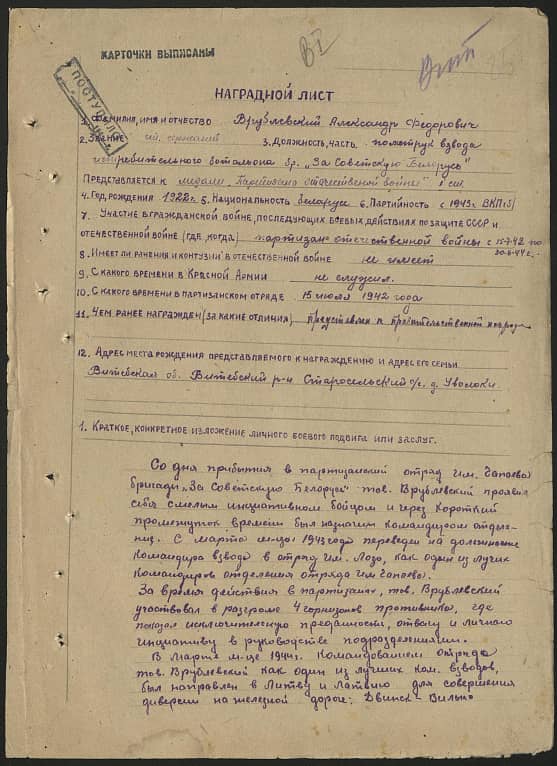 КАРТОЧКИ ВЫПИСАНЫ
ПОСТУПИЛО
НАГРАДНОЙ ЛИСТ
1. Фамилия, имя и отчество Врублевский Александр Федорович
2. Звание 3. Должность, часть политрук взвода
истребительного батальона бр. „За Советскую Белорусь"
Представляется к медали „Партизана отечественной войны" I ст.
4. Год рождения 1922 г. 5. Национальность беларус 6. Партийность с 1943 г. ВКП(б)
7. Участие в гражданской войне, последующих боевых действиях по защите СССР и
отечественной войне (где, когда) партизан отечественной войны с 15-7-42 по
8. Имеет ли ранения и контузии в отечественной войне не имеет
9. С какого времени в Красной Армии не служил.
10. С какого времени в партизанском отряде 15 июля 1942 года
11. Чем ранее награжден (за какие отличия) представлен к правительственной награде
12. Адрес места рождения представляемого к награждению и адрес его семьи
Витебская об. Витебский р-н Старосельский с/с. д. Уволоки.
1. Краткое, конкретное изложение личного боевого подвига или заслуг.
Со дня прибытия в партизанский отряд им. Чапаева
бригады „За Советскую Белорусь" тов. Врублевский проявил
себя смелым инициативном бойцом и через короткий
промежуток времени был назначен командиром отделе-
ния. С марта м-ца 1943 года переведен на должность
командира взвода в отряд им. Лазо, как один из лучих
командиров отделения отряда им Чапаева.
За время действия в партизанах, тов. Врублевский
участвовал в разгроме 4 горнизонов противника, где
показал исключительную преданность, отвагу и личную
инциативу в руководстве подразделениями.
В Марте м-це 1944 г. Командованием отряда
тов. Врублевский как один из лучших ком. взводов,
был направлен в Литву и Латвию для совершения
диверсии на железной дороге: Двинск - Вильно